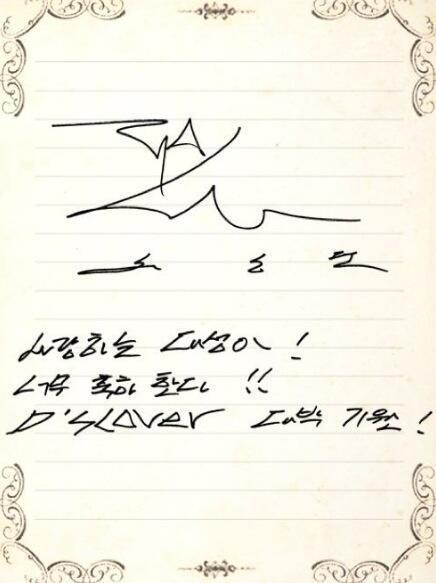 사랑하는 대성아 !
너무 축하 한다 !!
D'SCOVER 대박 기원 !